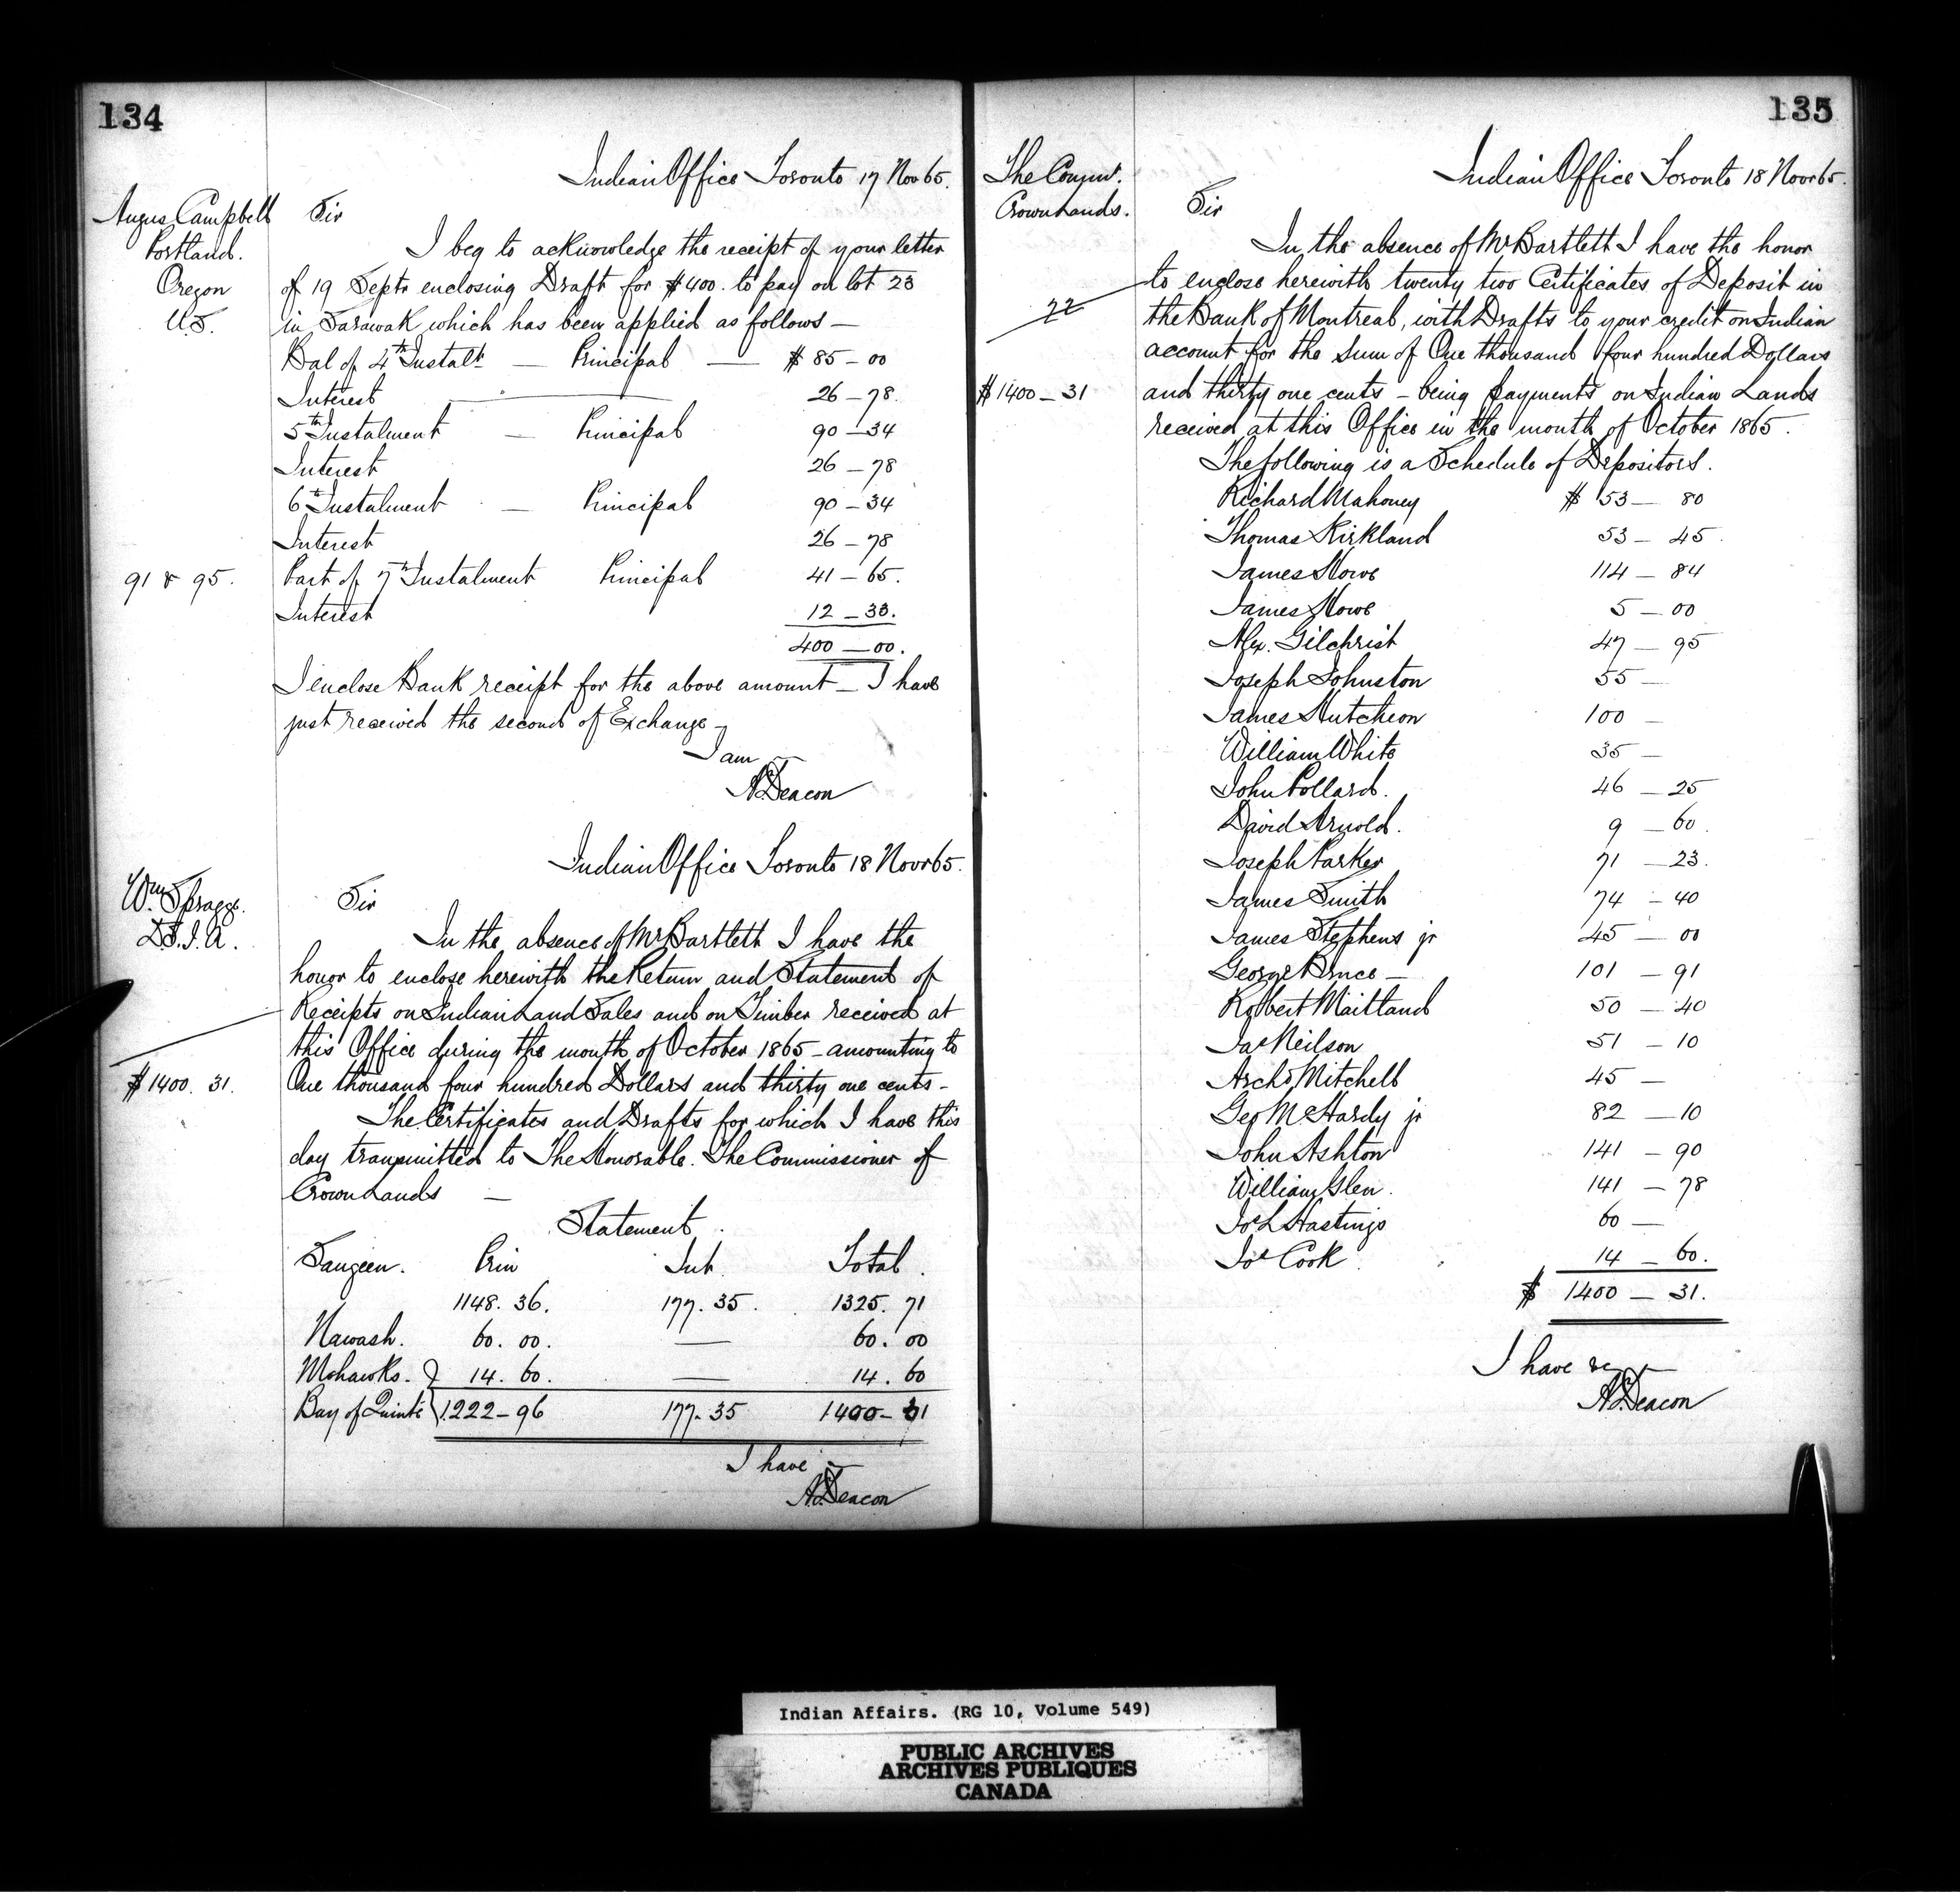 134
Indian Office Toronto 17 Nov 65.
Angus Campbell
Portland.
Oregon
U.S.
Sir
I beg to acknowledge the receipt of your letter
of 19 Septr enclosing Draft for $400. to pay on lot 23
in Sarawak which has been applied as follows —
Bal of 4th Instalt — Principal — $ 85 - 00
Interest — 26 - 78.
5th Instalment — Principal 90 - 34
Interest 26 - 78
6th Instalment — Principal 90 - 34
Interest 26 - 78
91 & 95. Part of 7th Instalment Principal 41 - 65.
Interest 12 - 33.
400 — 00.
I enclose Bank receipt for the above amount — I have
just received the second of Exchange —
I am —
A Deacon
Indian Office Toronto 18 Novr 65.
Wm Spragge.
D.S.I.A.
Sir
In the absence of Mr Bartlett I have the
honor to enclose herewith the Return and Statement of
Receipts on Indian Land Sales and on Timber received at
this Office during the month of October 1865 - amounting to
$1400. 31. One thousand four hundred Dollars and thirty one cents -
The Certificates and Drafts for which I have this
day transmitted to The Honorable. The Commissioner of
Crown Lands —
Statement.
Saugeen. Prin Int. Total.
1148. 36. 177. 35. 1325. 71
Nawash. 60. 00. — 60. 00
Mohawks. } 14. 60. — 14. 60
Bay of Quinté } 1222 - 96 177 - 35 1400 - 31
I have —
A Deacon
135
Indian Office Toronto 18 Novr 65.
The Commr.
Crown Lands.
Sir
In the absence of Mr Bartlett I have the honor
to enclose herewith twenty two Cetificates of Deposit in
22
the Bank of Montreal, with Drafts to your credit on Indian
account for the Sum of One thousand four hundred Dollars
$1400 - 31 and thirty one cents - being payments on Indian Lands
received at this Office in the month of October 1865.
The following is a Schedule of Depositors.
Richard Mahoney $ 53 — 80
Thomas Kirkland 53 — 45.
James Howe 114 — 84
James Howe 5 — 00
Alex. Gilchrist 47 — 95
Joseph Johnston 55 —
James Hutcheon 100 —
William White 35 —
John Pollard. 46 — 25
David Arnold. 9 — 60.
Joseph Parker 71 — 23.
James Smith 74 - 40
James Stephens jr 45 — 00
George Bruce — 101 — 91
Robert Maitland 50 — 40
Jas Neilson 51 — 10
Archd Mitchell 45 —
Geo McHardy jr 82 — 10
John Ashton 141 — 90
William Glen. 141 — 78
Jos L Hastings 60 —
Jos Cook 14 — 60.
$ 1400 — 31.
I have &c —
A Deacon
Indian Affairs. (RG 10, Volume 549)
PUBLIC ARCHIVES
ARCHIVES PUBLIQUES
CANADA